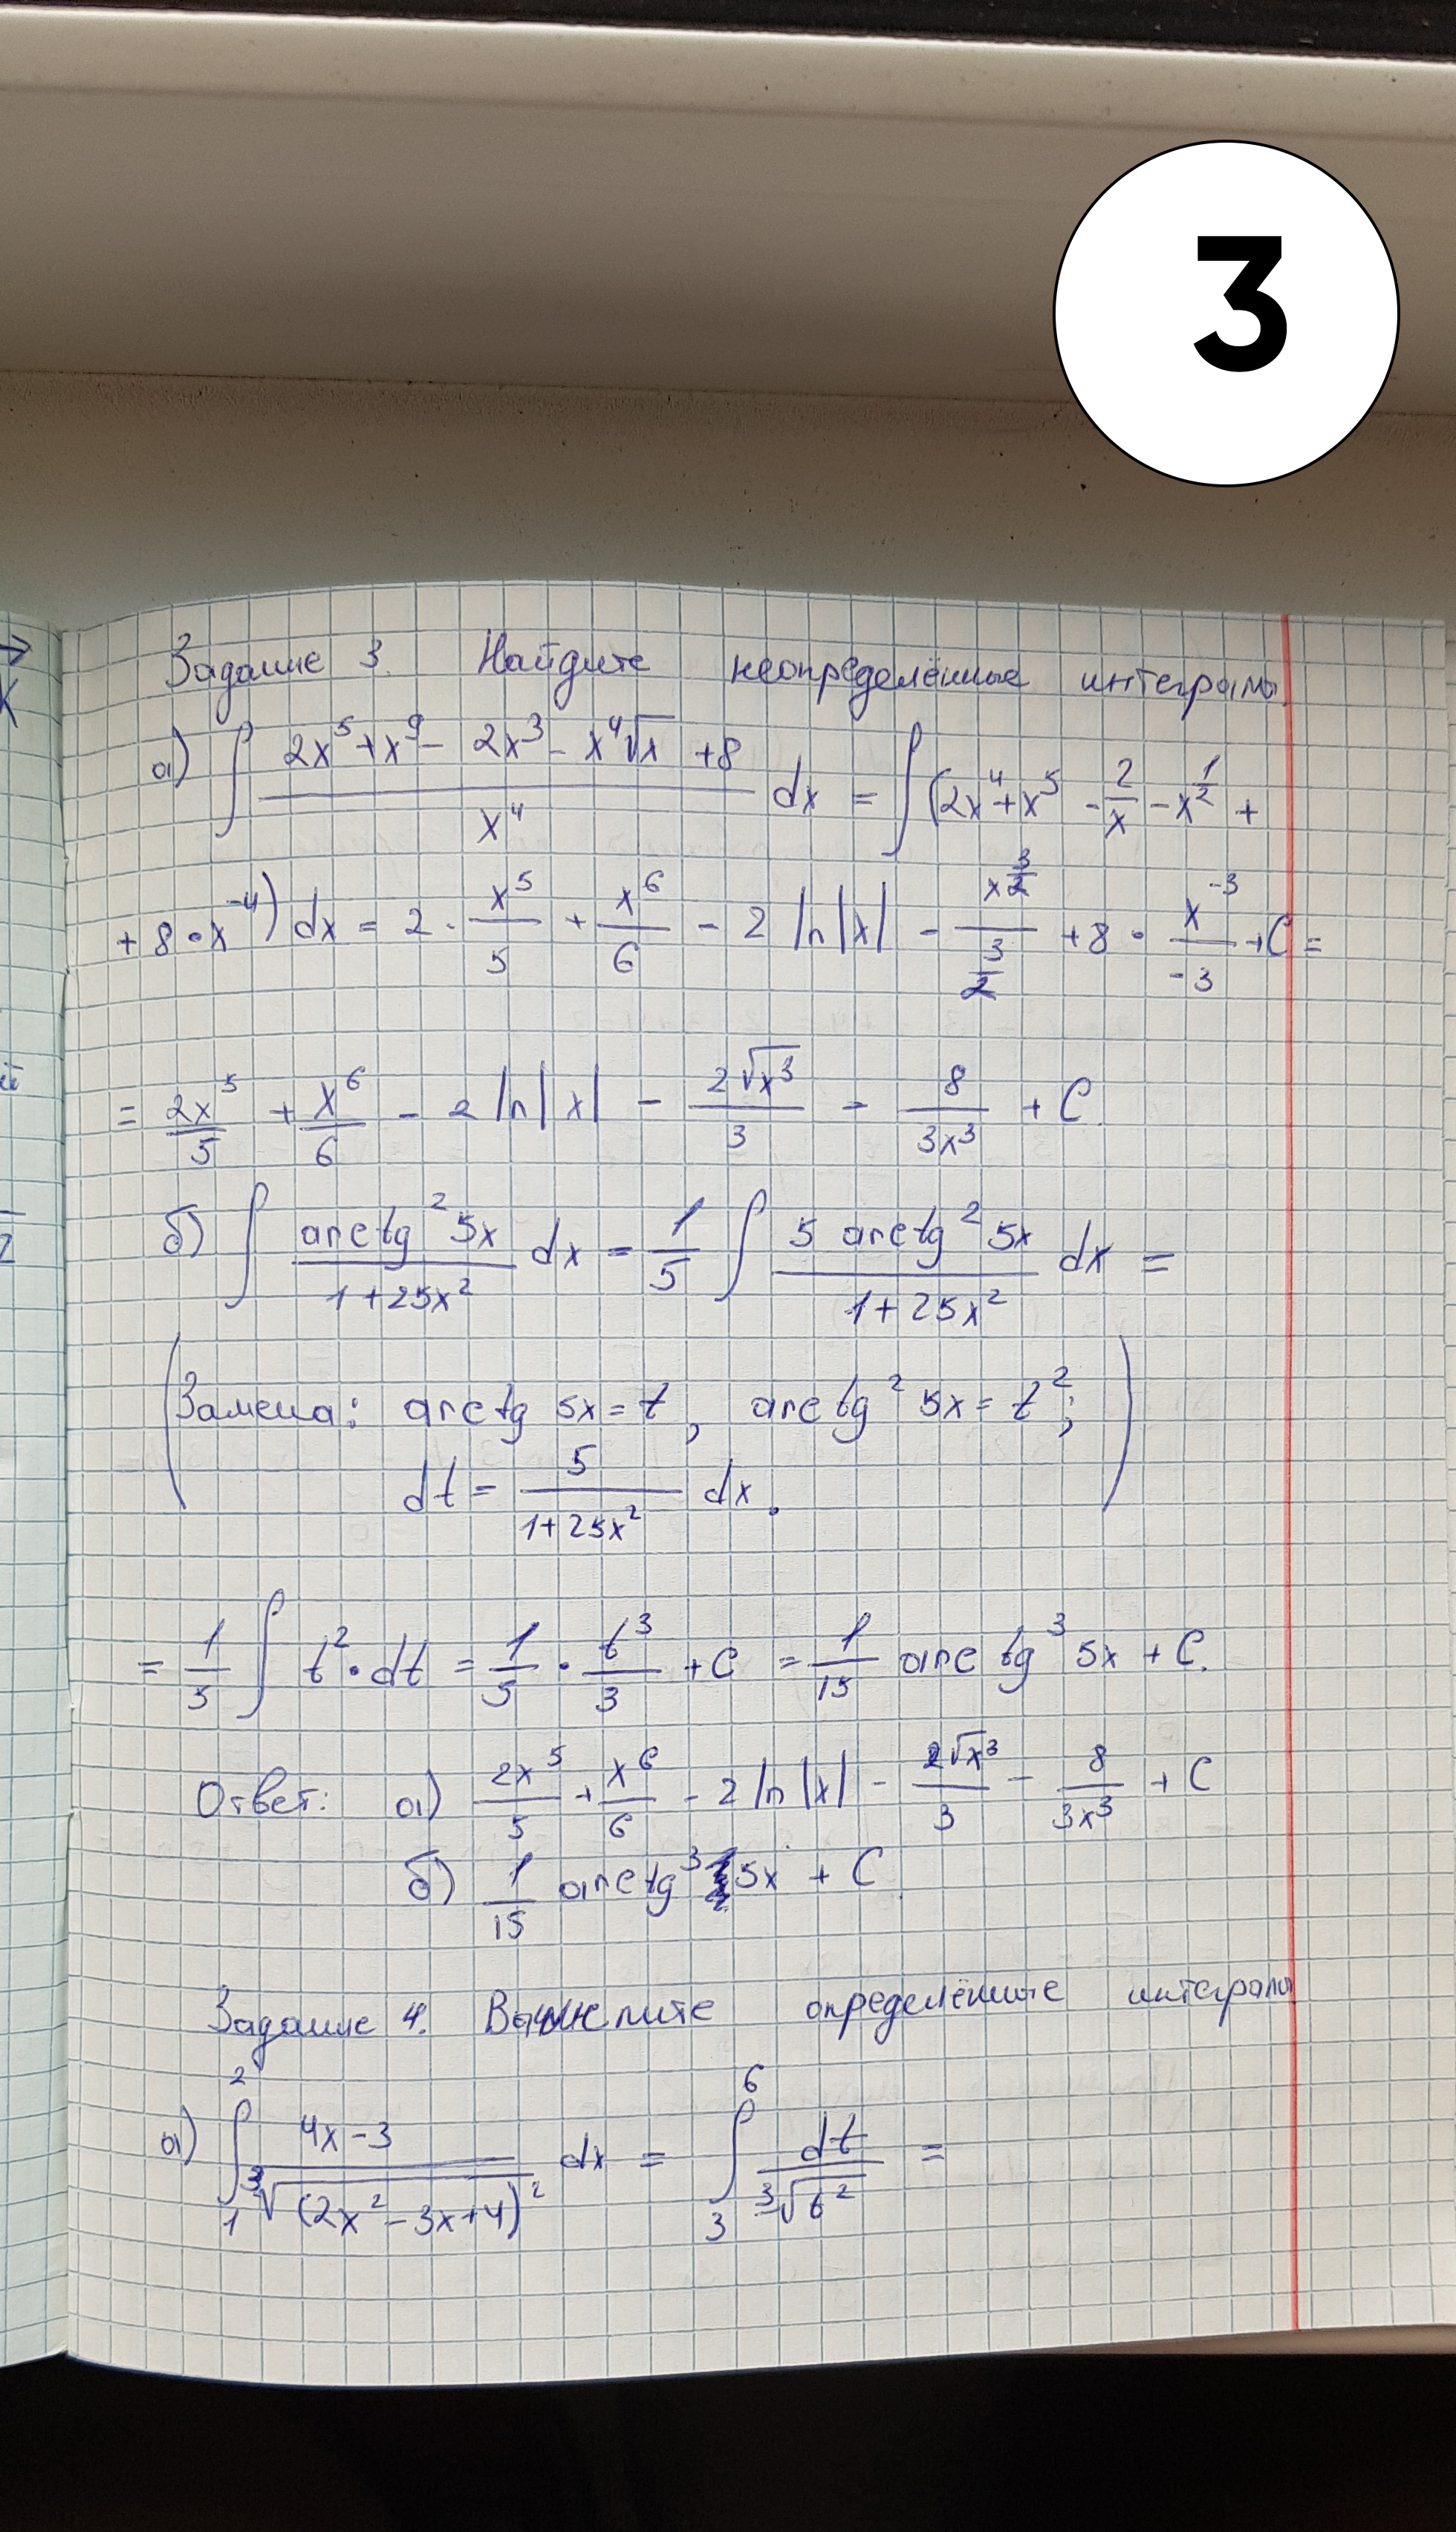 3
Задание 3. Найдите неопределённые интегралы.
а) ∫ (2x⁵+x⁹ - 2x³ - x⁴√x +8)/x⁴ dx = ∫(2x⁴+x⁵ - 2/x - x^(1/2) +
+ 8 • x⁻⁴) dx = 2 · x⁵/5 + x⁶/6 - 2 ln|x| - x^(3/2)/(3/2) + 8 • x⁻³/-3 + C =
= 2x⁵/5 + x⁶/6 - 2 ln|x| - 2√x³/3 - 8/3x³ + C.
б) ∫ arctg²5x/(1+25x²) dx = 1/5 ∫ 5 arctg²5x/(1+25x²) dx =
(Замена: arctg 5x = t, arctg² 5x = t²;
dt = 5/(1+25x²) dx.)
= 1/5 ∫ t² • dt = 1/5 • t³/3 + C = 1/15 arctg³ 5x + C.
Ответ: а) 2x⁵/5 + x⁶/6 - 2 ln|x| - 2√x³/3 - 8/3x³ + C
б) 1/15 arctg³ 5x + C.
Задание 4. Вычислите определённые интегралы
а) ∫₁² (4x-3)/∛(2x²-3x+4)² dx = ∫₃⁶ dt/∛t² =